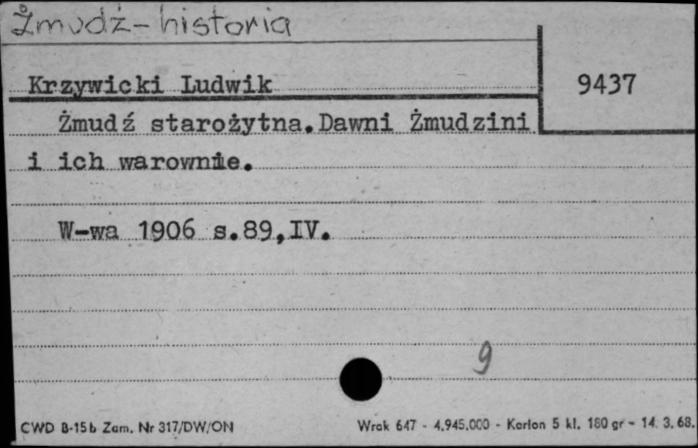 Żmudź - historia
Krzywicki Ludwik
9437
Żmudź starożytna. Dawni Żmudzini
i ich warownie.
W-wa 1906 s.89,IV.
9
CWD B-15b Zam. Nr 317/DW/ON
Wrak 647 - 4.945.000 - Karton 5 kl. 180 gr - 14. 3. 68.